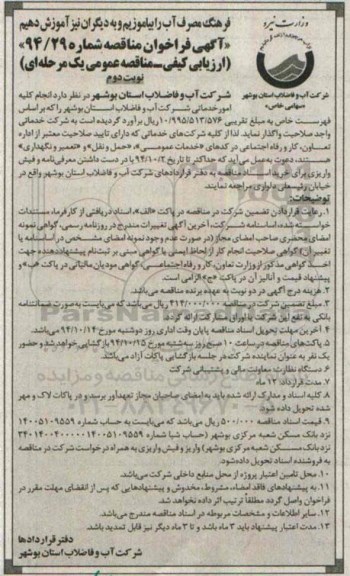 وزارت نیرو
شرکت آب و فاضلاب استان بوشهر
«سهامی خاص»
فرهنگ مصرف آب را بیاموزیم و به دیگران نیز آموزش دهیم
«آگهی فراخوان مناقصه شماره ۹۴/۲۹»
(ارزیابی کیفی-مناقصه عمومی یک مرحله‌ای)
نوبت دوم
شرکت آب و فاضلاب استان بوشهر در نظر دارد انجام کلیه
امور خدماتی شرکت آب و فاضلاب استان بوشهر را که بر اساس
فهرست خاص به مبلغ تقریبی ۱۰/۹۹۵/۵۱۳/۵۷۶ ریال برآورد گردیده است به شرکت خدماتی
واجد صلاحیت واگذار نماید. لذا از کلیه شرکت‌های خدماتی که دارای تایید صلاحیت معتبر از اداره
تعاون، کار و رفاه اجتماعی در کدهای «خدمات عمومی»، «حمل و نقل» و «تعمیر و نگهداری»
هستند، دعوت به عمل می‌آید که حداکثر تا تاریخ ۹۴/۱۰/۲ با در دست داشتن معرفی‌نامه و فیش
واریزی برای خرید اسناد مناقصه به دفتر قراردادهای شرکت آب و فاضلاب استان بوشهر واقع در
خیابان رئیسعلی دلواری مراجعه نمایند.
توضیحات:
۱. رعایت قراردادن تضمین شرکت در مناقصه در پاکت «الف»، اسناد دریافتی از کارفرما، مستندات
خواسته شده، اساسنامه شرکت، آخرین آگهی تغییرات مندرج در روزنامه رسمی، گواهی نمونه
امضای محضری صاحب امضای مجاز (در صورت عدم وجود نمونه امضای مشخص در اساسنامه یا
تغییرات) گواهی صلاحیت انجام کار از لحاظ ایمنی یا گواهی مبنی بر ثبت‌نام پیشنهاددهنده جهت
اخذ گواهی مذکور از وزارت تعاون، کار و رفاه اجتماعی، گواهی مودیان مالیاتی در پاکت «ب» و
پیشنهاد قیمت و آنالیز آن در پاکت «ج» الزامی است.
۲. هزینه درج آگهی در دو نوبت به عهده برنده مناقصه می‌باشد.
۳. مبلغ تضمین شرکت در مناقصه ۴۱۲/۰۰۰/۰۰۰ ریال می‌باشد که می‌بایست به صورت ضمانتنامه
بانکی به نفع این شرکت با عنوان مشارکت ارائه گردد.
۴. آخرین مهلت تحویل اسناد مناقصه پایان وقت اداری روز دوشنبه مورخ ۹۴/۱۰/۱۴ می‌باشد.
۵. پاکت‌های مناقصه در ساعت ۱۰ صبح روز سه‌شنبه مورخ ۹۴/۱۰/۱۵ بازگشایی خواهد شد و حضور
یک نفر به عنوان نماینده شرکت در جلسه بازگشایی پاکات آزاد می‌باشد.
۶. دستگاه نظارت: معاونت مالی و پشتیبانی شرکت
۷. مدت قرارداد: ۱۲ ماه
۸. کلیه اسناد و مدارک ارائه شده باید به امضای صاحبان مجاز تعهدآور برسد و در پاکات لاک و مهر
شده تحویل داده شود.
۹. قیمت اسناد مناقصه ۵۰۰/۰۰۰ ریال می‌باشد که می‌بایست به حساب شماره ۱۴۰۰۵۱۰۹۵۵۹
نزد بانک مسکن شعبه مرکزی بوشهر (حساب شبا شماره
نزد بانک مسکن شعبه مرکزی بوشهر) واریز و فیش واریزی به همراه درخواست شرکت در مناقصه
به فروشنده اسناد تحویل داده شود.
۱۰. محل تامین اعتبار پروژه از محل منابع داخلی شرکت می‌باشد.
۱۱. به پیشنهادهای فاقد امضاء، مشروط، مخدوش و پیشنهادهایی که پس از انقضای مهلت مقرر در
فراخوان واصل گردد مطلقاً ترتیب اثر داده نخواهد شد.
۱۲. سایر اطلاعات و مشخصات مربوطه در اسناد مناقصه مندرج می‌باشد.
۱۳. مدت اعتبار پیشنهاد باید ۳ ماه باشد و تا ۳ ماه دیگر نیز قابل تمدید باشد.
دفتر قراردادها
شرکت آب و فاضلاب استان بوشهر